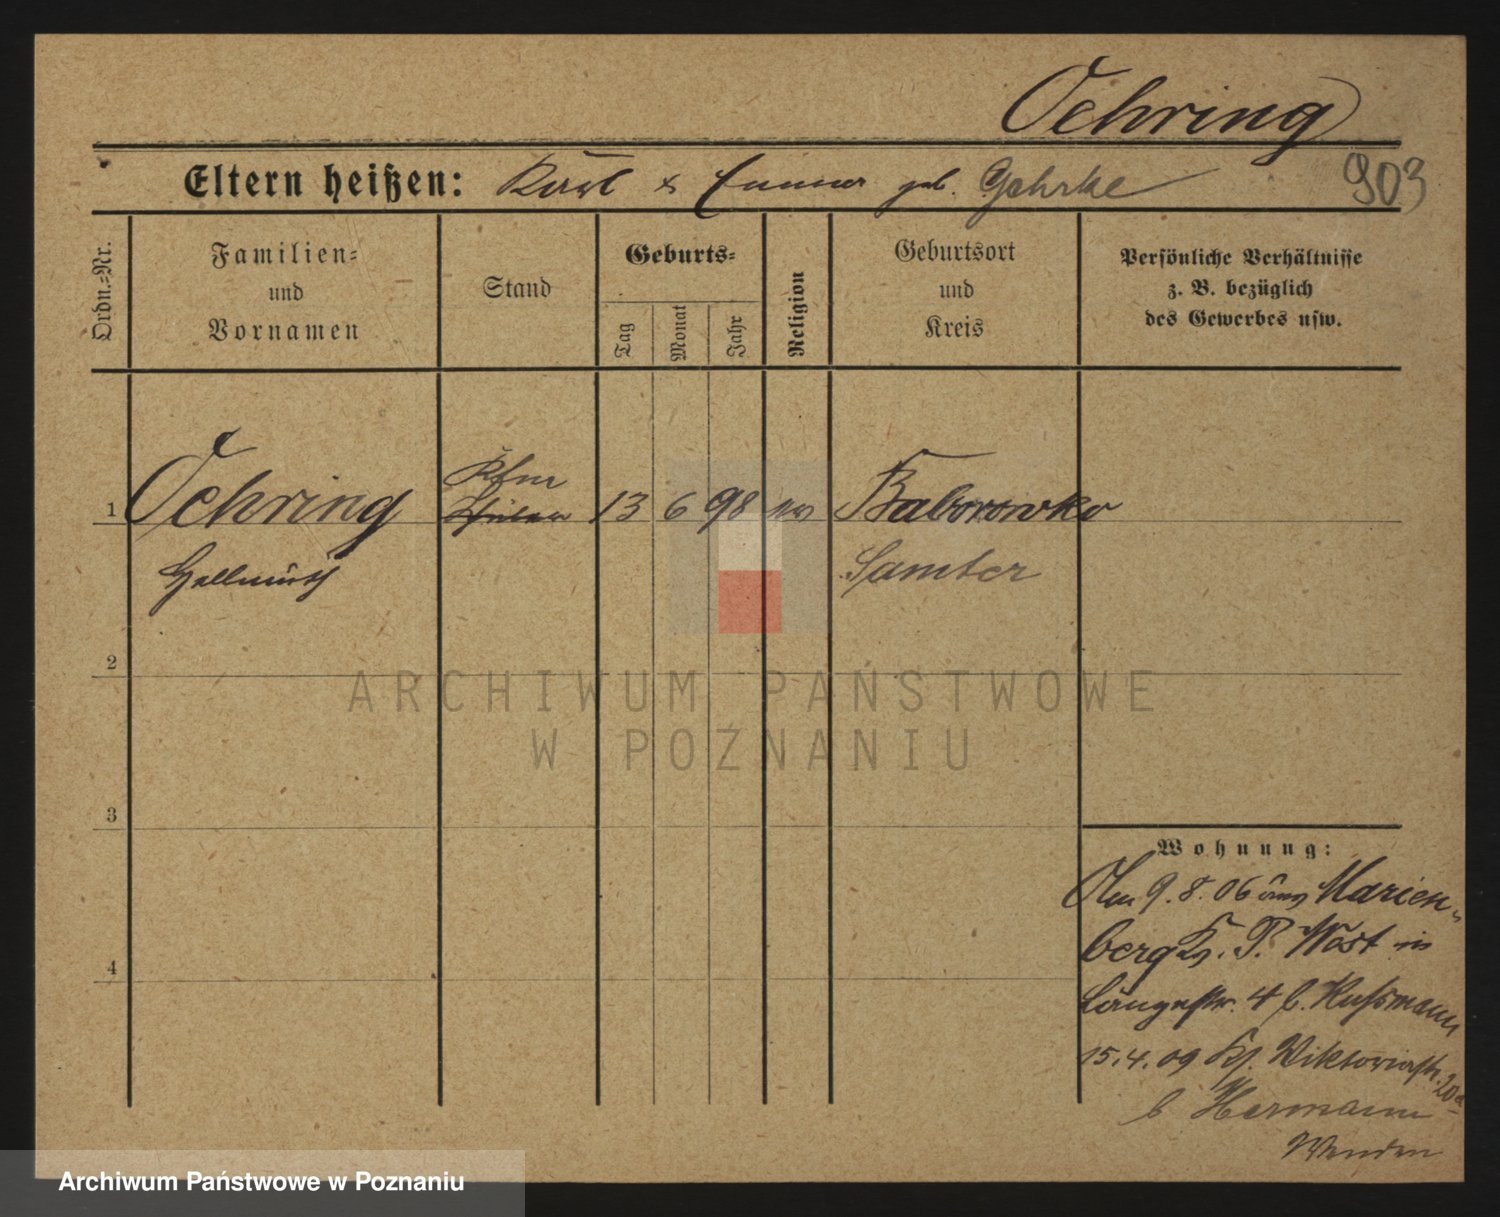 Oehring
Eltern heißen: Karl & Emma geb. Gehrke
903
Ordn.-Nr.
Familien-
und
Vornamen
Stand
Geburts-
Tag
Monat
Jahr
Religion
Geburtsort
und
Kreis
Persönliche Verhältnisse
z. B. bezüglich
des Gewerbes usw.
1
Oehring
Hellmuth
Kfm
Schüler
13 6 98 ev
Baborowko
Samter
2
3
4
Wohnung:
Am 9.8.06 aus Marien-
berg Kr. P. West in
Langestr. 4 b. Hussmann
15.4.09 Kg. Viktoriastr. 20a
b Hermann
Wenden
ARCHIWUM PAŃSTWOWE
W POZNANIU
Archiwum Państwowe w Poznaniu